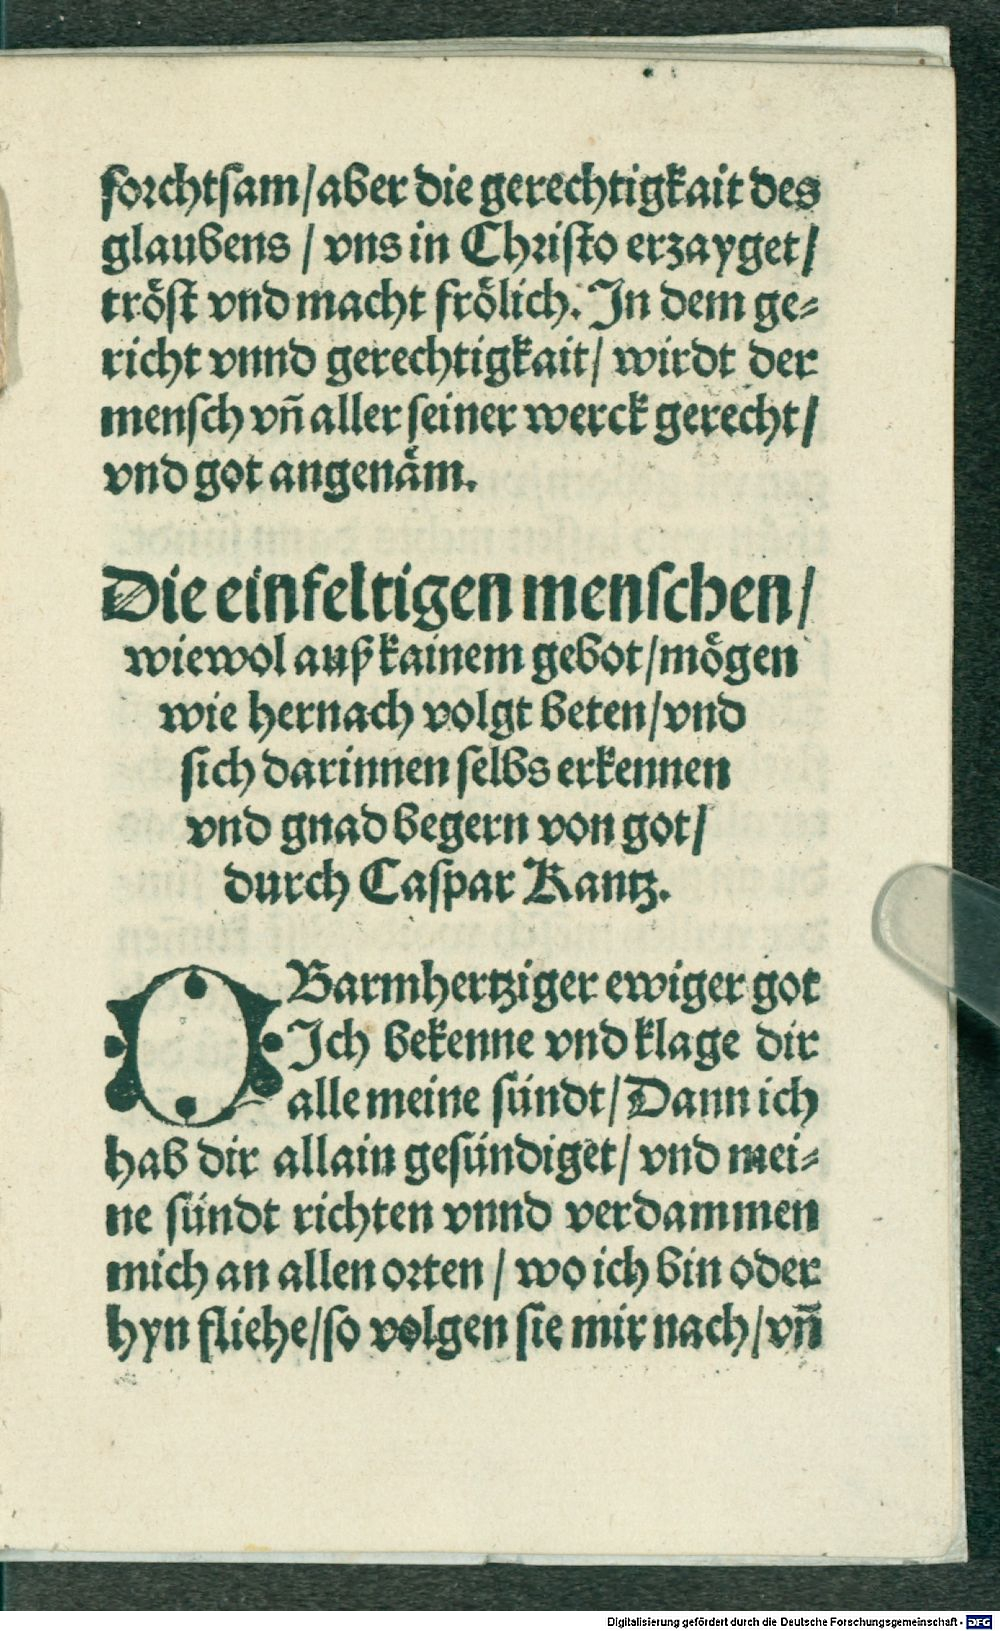 forchtsam/aber die gerechtigkait des
glaubens / vns in Christo erzayget/
tröst vnd macht frölich. In dem ge⸗
richt vnnd gerechtigkait/ wirdt der
mensch vñ aller seiner werck gerecht/
vnd got angenäm.
Die einfeltigen menschen/
wiewol auß kainem gebot/mögen
wie hernach volgt beten/vnd
sich darinnen selbs erkennen
vnd gnad begern von got/
durch Caspar Kantz.
O Barmhertziger ewiger got
Ich bekenne vnd klage dir
alle meine sündt/Dann ich
hab dir allain gesündiget/ vnd mei⸗
ne sündt richten vnnd verdammen
mich an allen orten / wo ich bin oder
hyn fliehe/so volgen sie mir nach/vñ
Digitalisierung gefördert durch die Deutsche Forschungsgemeinschaft - DFG